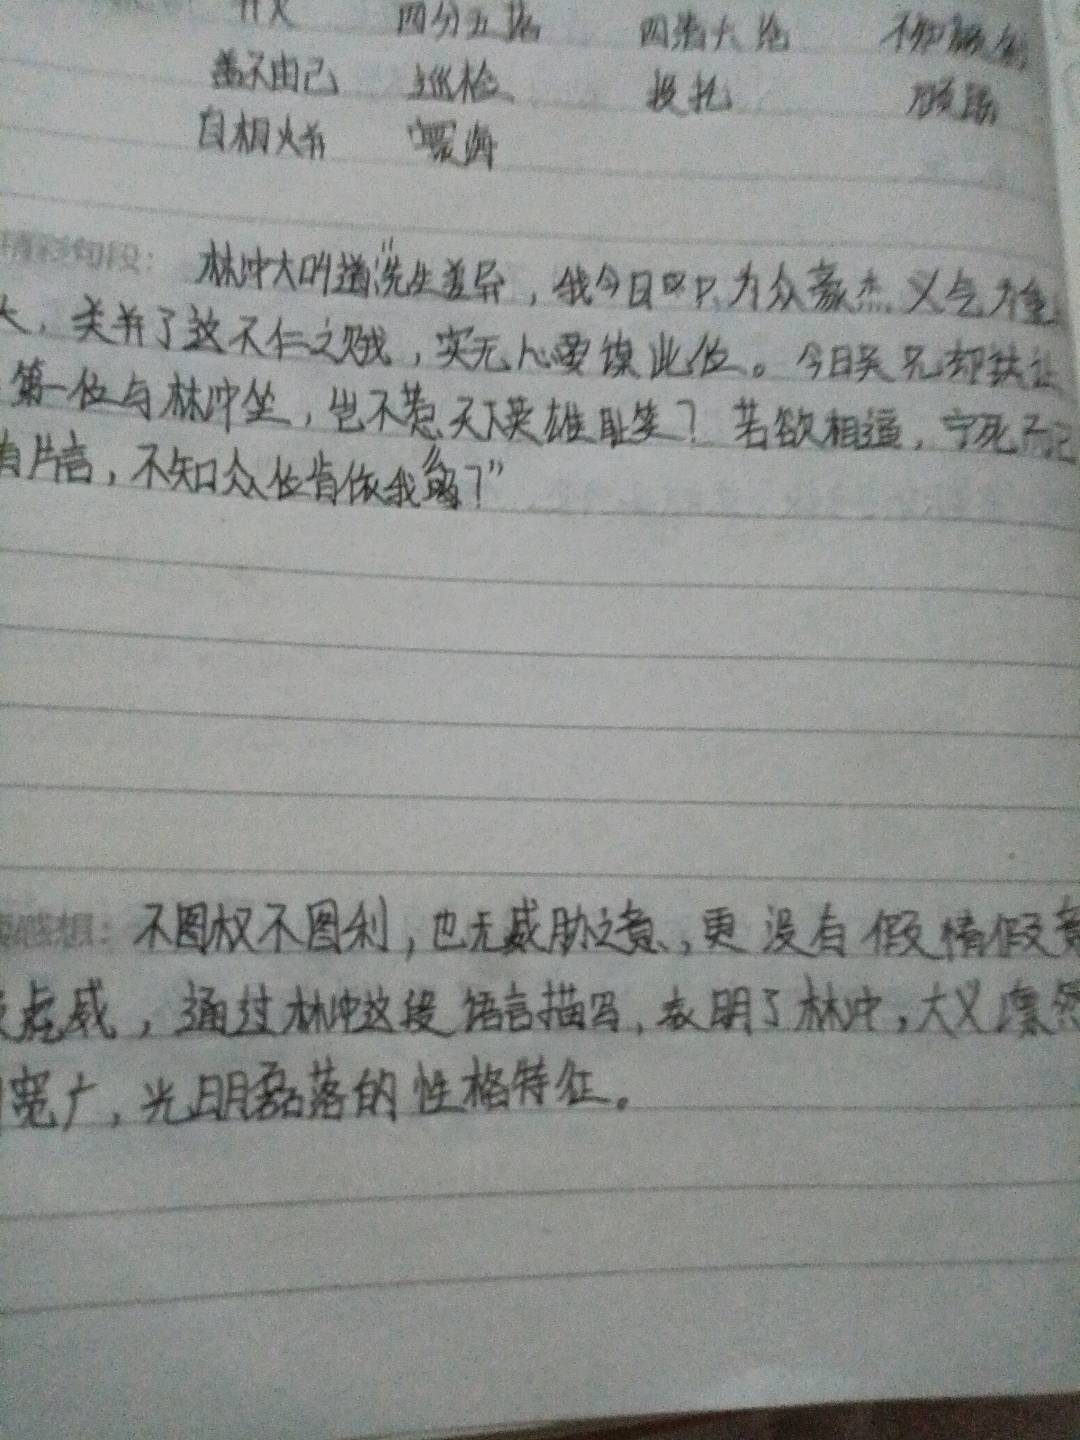 四分五落
盖不由己 巡检 投托
自相火并
精彩句段：林冲大叫道“先生差异，我今日只为众豪杰义气为重
火并了这不仁之贼，实无心要谋此位。今日吴兄却扶让
第一位与林冲坐，岂不惹天下英雄耻笑？若欲相逼，宁死而已
有片言，不知众位肯依我么？”
感想：不图权不图利，也无威胁之意，更没有假情假意
虎威，通过林冲这段语言描写，表明了林冲，大义凛然
宽广，光明磊落的性格特征。